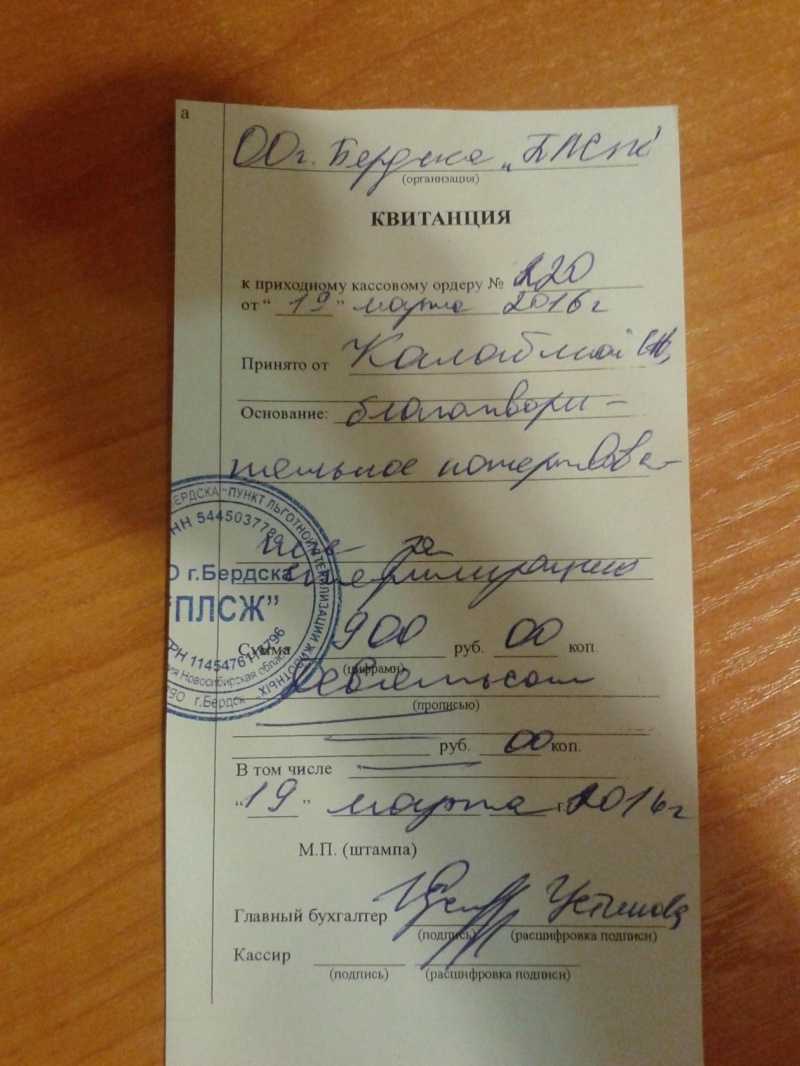 а
ОО г. Бердска "ПЛСЖ"
(организация)
КВИТАНЦИЯ
к приходному кассовому ордеру № 220
от "19" марта 2016 г
Принято от
Основание: благотвори-
тельное пожертвова-
ние за
стерилизацию
БЕРДСКА "ПУНКТ ЛЬГОТНОЙ СТЕРИЛИЗАЦИИ ЖИВОТНЫХ"
ИНН 5445037789
г.Бердска
"ПЛСЖ"
Новосибирская область
г.Бердск
Сумма 900 руб. 00 коп.
(цифрами)
Девятьсот
(прописью)
руб. 00 коп.
В том числе
"19" марта 2016 г
М.П. (штампа)
Главный бухгалтер
(подпись) (расшифровка подписи)
Кассир
(подпись) (расшифровка подписи)